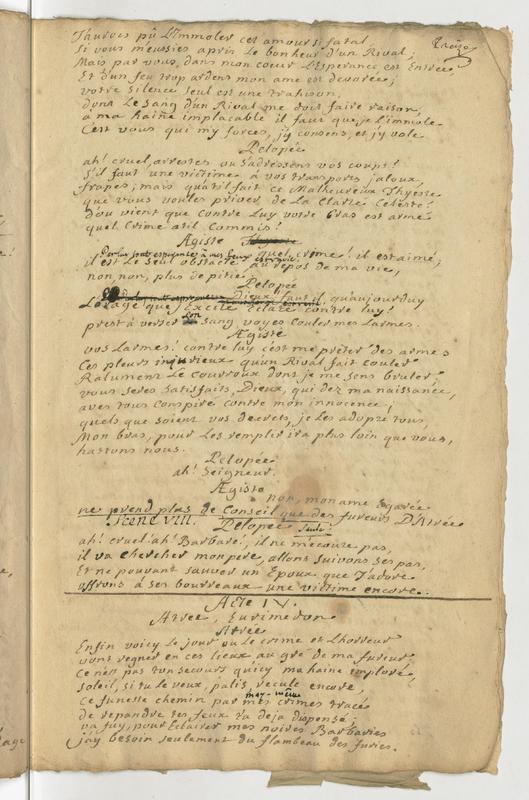 J'aurois pû L'immoler cet amour si fatal,
Si vous m'eussies apris Le bonheur d'un Rival;
Mais par vous, dans mon coeur L'Esperance est Entrée
Et d'un feu trop ardens mon ame est devorée;
votre silence seul est une trahison,
dont Le sang d'un Rival me doit faire raison,
a ma haine implacable il faut que je L'immole
C'est vous qui m'y forcés, j'y consens, et j'y vole
Pelopée
ah! cruel, arrestes ou s'adressent vos coups!
s'il faut une victime à vos transports jaloux
frapes; mais qu'a t'il fait ce Malheureux Thyeste
que vous voules priver de La Clarte Celeste!
d'ou vient que contre Luy votre bras est armé
quel Crime at il commis!
Ægiste
quel crime! il est aimé;
il est Le seul obstacle au repos de ma vie,
non, non, plus de pitié,
Pelopé
Dieux! faut il, qu'aujourduy
L'orage que j'excite eclate contre luy!
prest à verser son sang voyes couler mes Larmes.
Ægiste
vos Larmes! contre luy c'est me prêter des armes
Ces pleurs injurieux qu'un Rival fait couler
Ralument Le Courroux dont je me sens bruler;
vous seres satisfaits, Dieux, qui dez ma naissance,
aves tous conspiré contre mon innocence;
quels que soient vos decrets, je Les adopte tous,
Mon bras, pour Les remplir ira plus loin que vous,
hastons nous.
Pelopée
ah! Seigneur.
Ægiste
non, mon ame egarée
ne prend plus de Conseil que des fureurs D'Atrée
Scene VIII. Pelopée seule
ah! cruel. ah! Barbare!, il ne m'ecoute pas,
il va chercher mon pere, allons suivons ses pas,
Et ne pouvant sauver un Epoux que j'adore
offrons à ses bourreaux une victime encore.
Acte IV.
Atrée, Eurimedon
Atrée
Enfin voicy Le jour ou Le crime et L'horreur
vont regner en ces lieux au gré de ma fureur
Ce n'est pas ton secours qu'icy ma haine implore,
soleil, si tu le veux, palis, recule encore,
Ce funeste chemin par mes crimes tracé
moy-même
de repandre tes feux t'a deja dispensé;
va fuy, pour Eclairer mes noires Barbaries
j'ay besoin seulement du flambeau des furies.